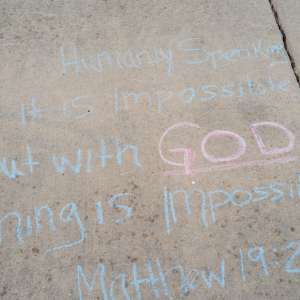 Humanly Speaking
it is Impossible
ut with GOD
hing is Impossi
Matthew 19:2